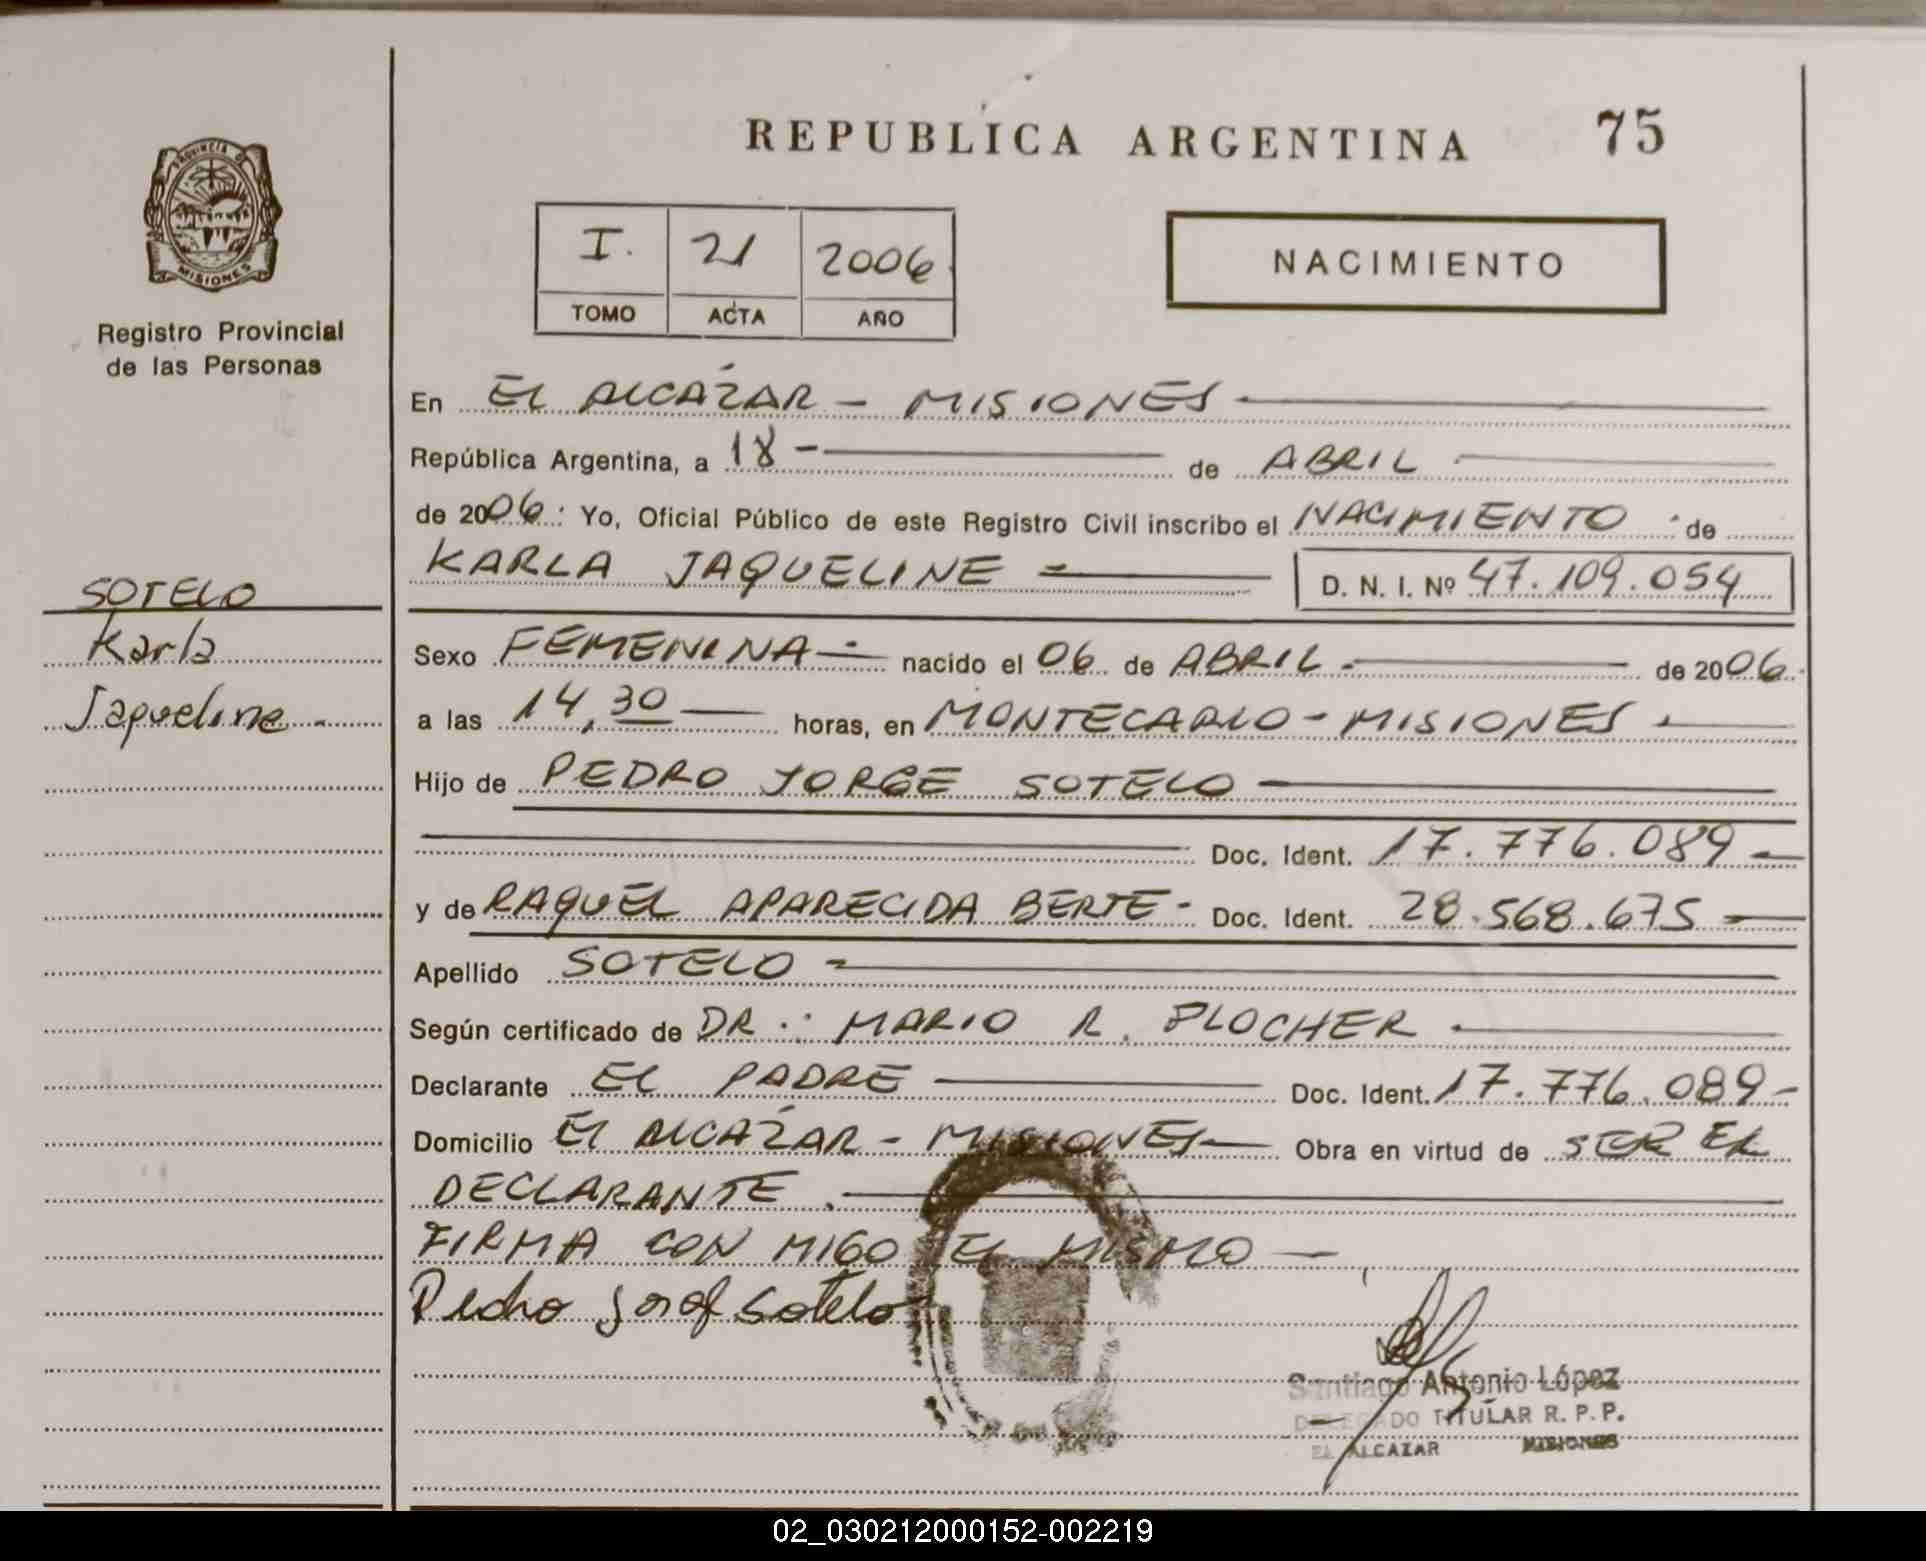 REPUBLICA ARGENTINA 75
PROVINCIA DE
MISIONES
Registro Provincial
de las Personas
I. 21 2006
TOMO ACTA AÑO
NACIMIENTO
En EL ALCÁZAR - MISIONES
República Argentina, a 18 - de ABRIL
de 2006: Yo, Oficial Público de este Registro Civil inscribo el NACIMIENTO de
KARLA JAQUELINE - D. N. I. Nº 47.109.054
SOTELO
Karla
Jaqueline -
Sexo FEMENINA - nacido el 06 de ABRIL - de 2006.
a las 14,30 horas, en MONTECARLO - MISIONES -
Hijo de PEDRO JORGE SOTELO
Doc. Ident. 17.776.089 -
y de RAQUEL APARECIDA BERTE - Doc. Ident. 28.568.675 -
Apellido SOTELO -
Según certificado de DR.: MARIO R. PLOCHER -
Declarante EL PADRE Doc. Ident. 17.776.089 -
Domicilio EL ALCÁZAR - MISIONES - Obra en virtud de SER EL
DECLARANTE.
FIRMA CON MIGO EL MISMO -
Pedro Sotelo
Santiago Antonio López
DELEGADO TITULAR R. P. P.
EL ALCAZAR MISIONES
02_030212000152-002219